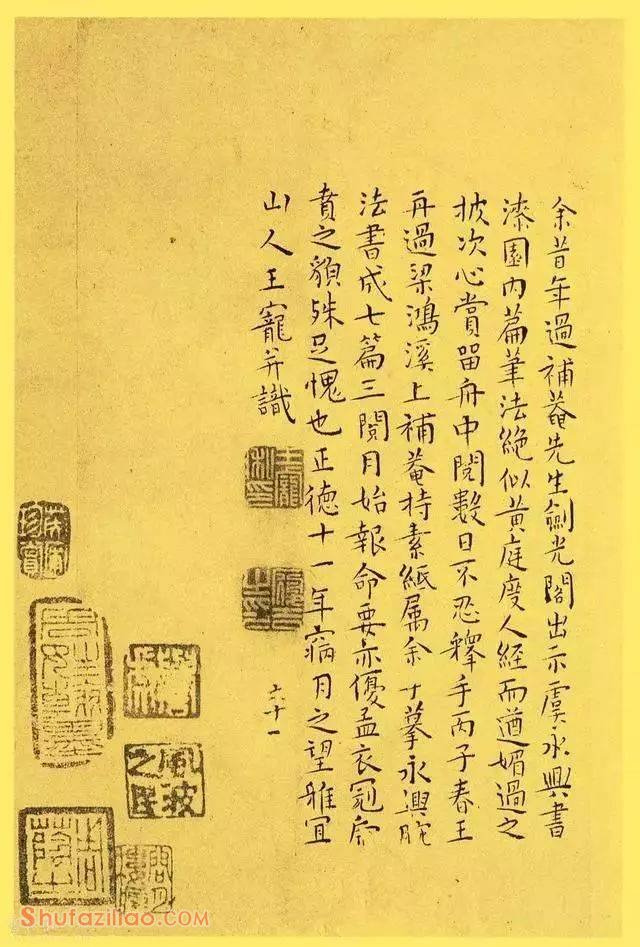 余昔年過補菴先生劍光閣出示虞永興書
漆園内篇筆法絶似黄庭度人經而遒媚過之
披次心賞留舟中閱數日不忍釋手丙子春王
再過梁鴻溪上補菴持素紙属余寸摹永興脫
法書成七篇三閱月始報命要亦優孟衣冠帝
賁之貌殊足愧也正德十一年病月之望雅宜
山人王寵并識
六十一
風波之民
Shufaziliao.COM